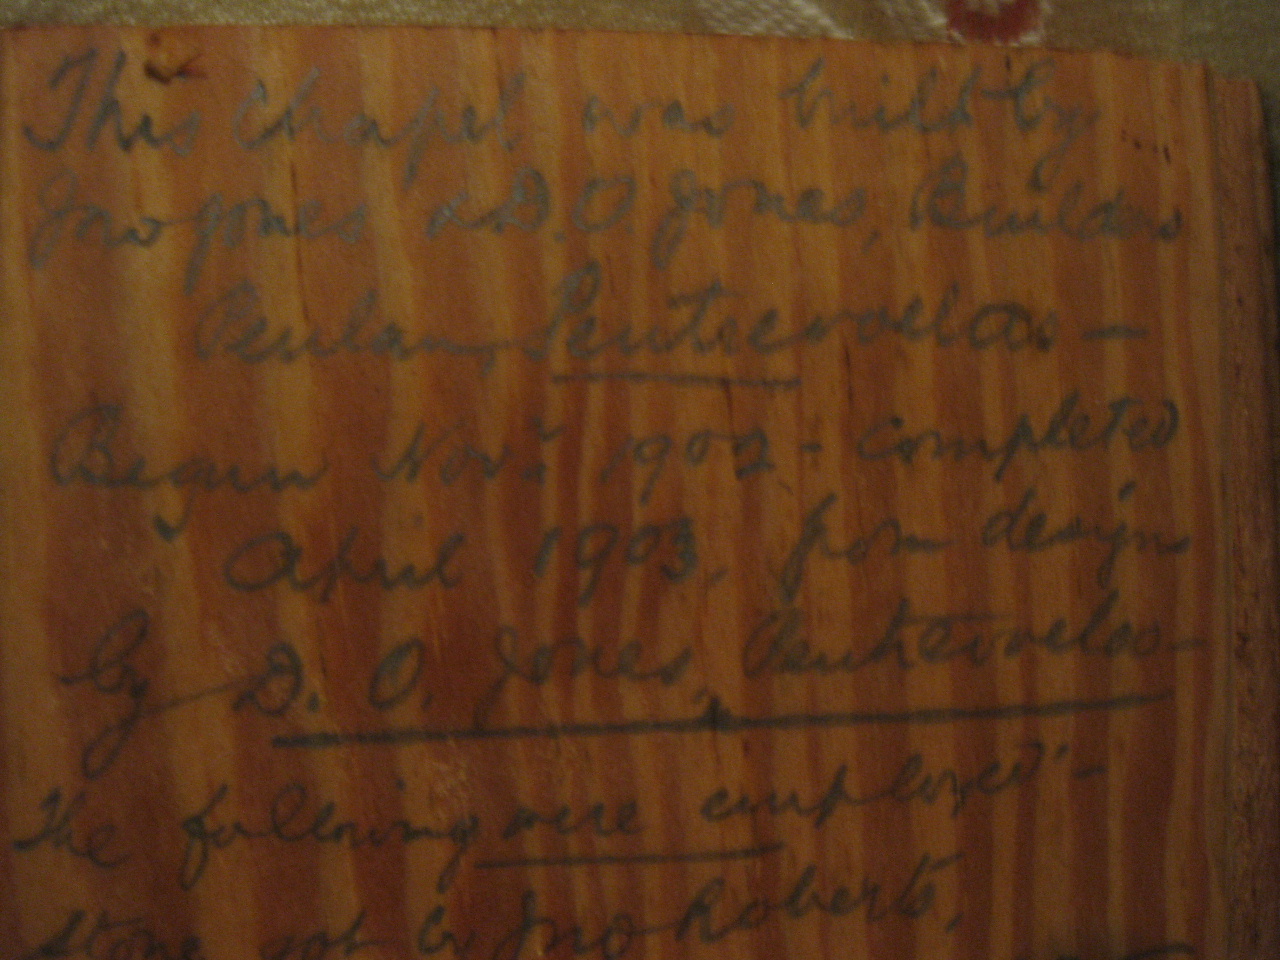 This Chapel was built by
Jno Jones & D. O. Jones, Builders
Penlan, Pentrevoelas —
Begun Novr 1902 - completed
April 1903, from designs
by D. O. Jones, Pentrevoelas -
The following were employed -
Stone got by Jno Roberts,